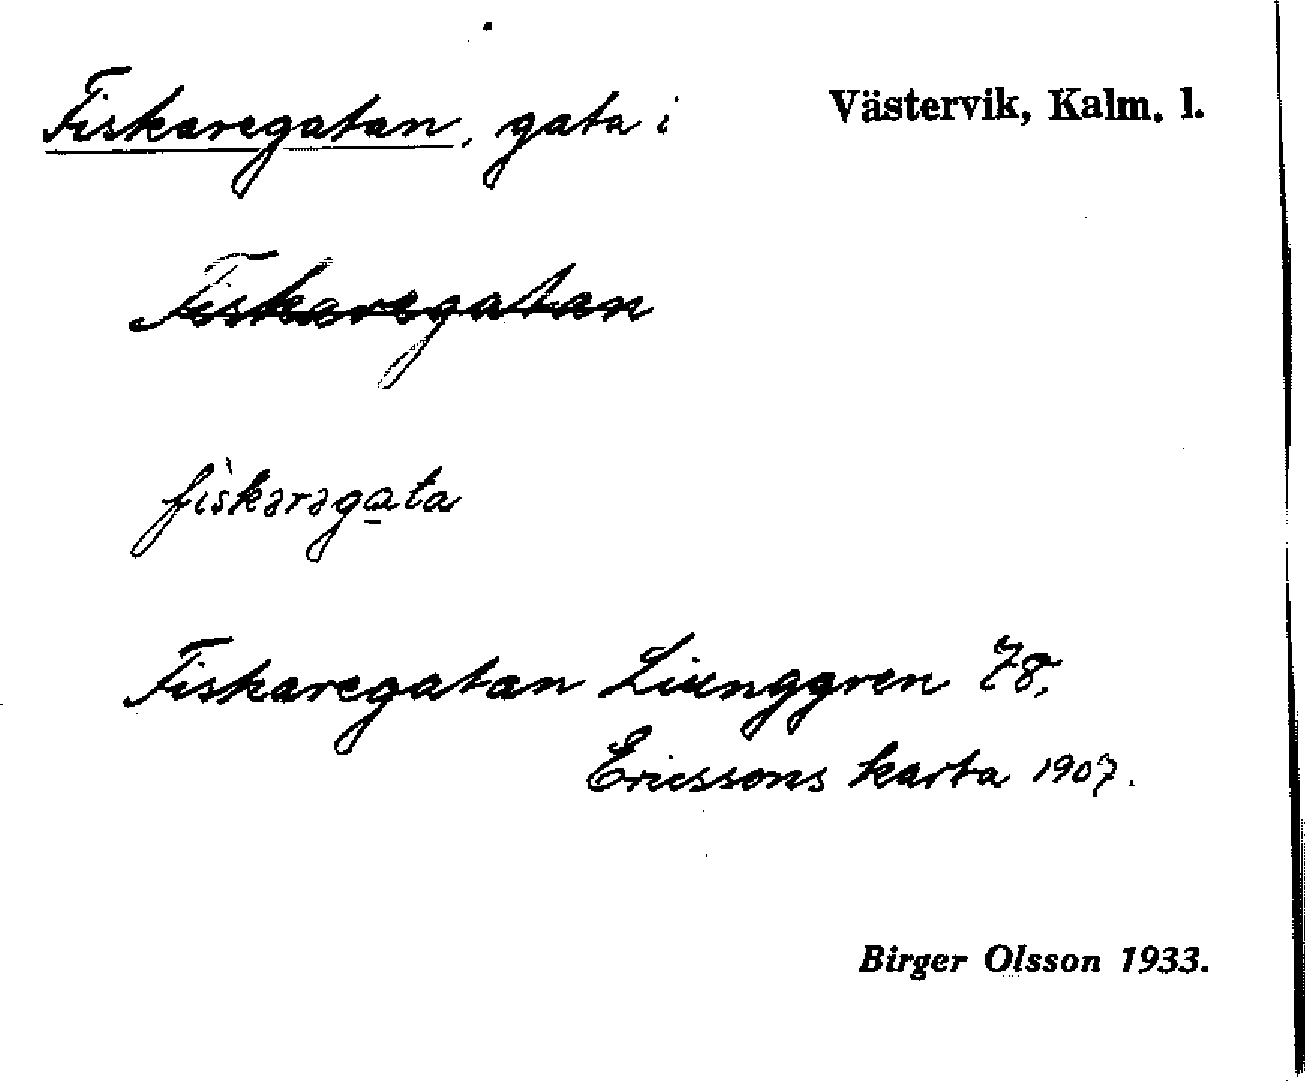 Fiskaregatan, gata i Västervik, Kalm. l.
Fiskaregatan
fìskərəgata
Fiskaregatan Liunggren 78,
Ericssons karta 1907.
Birger Olsson 1933.